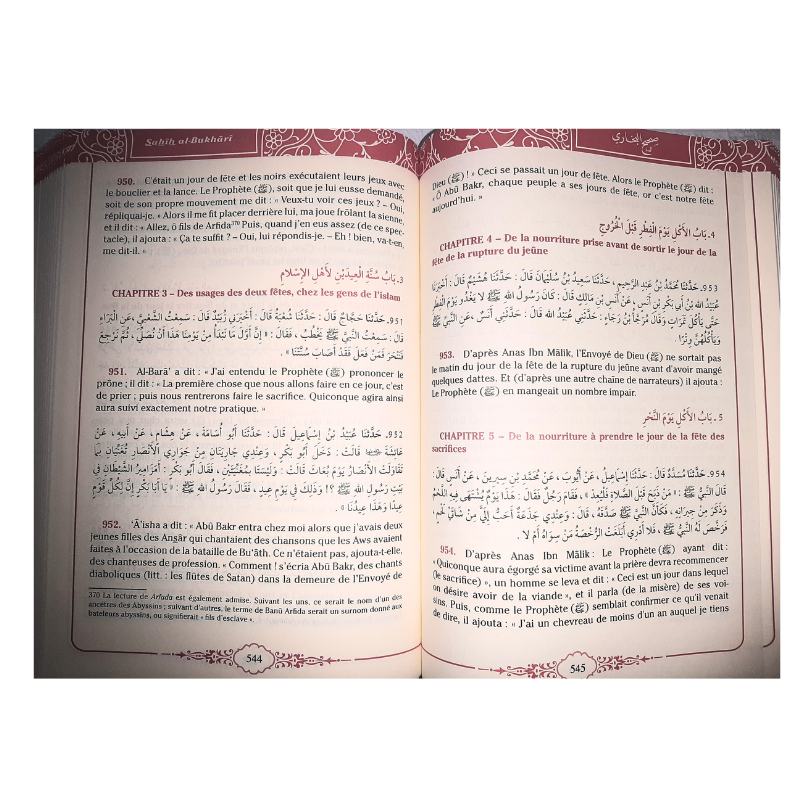 Sahîh al-Bukhârî
950. C'était un jour de fête et les noirs exécutaient leurs jeux avec
le bouclier et la lance. Le Prophète (ﷺ), soit que je lui eusse demandé,
soit de son propre mouvement me dit : « Veux-tu voir ces jeux ? – Oui,
répliquai-je. « Alors il me fit placer derrière lui, ma joue frôlant la sienne,
et il dit : « Allez, ô fils de Arfida³⁷⁰ Puis, quand j'en eus assez (de ce spec-
tacle), il ajouta : « Ça te suffit ? – Oui, lui répondis-je. – Eh ! bien, va-t-en,
me dit-il. »
3. بَابُ سُنَّةِ الْعِيدَيْنِ لِأَهْلِ الْإِسْلَامِ
CHAPITRE 3 – Des usages des deux fêtes, chez les gens de l'islam
951. حَدَّثَنَا حَجَّاجٌ قَالَ: حَدَّثَنَا شُعْبَةُ قَالَ: أَخْبَرَنِي زُبَيْدٌ قَالَ: سَمِعْتُ الشَّعْبِيَّ، عَنِ الْبَرَاءِ
قَالَ: سَمِعْتُ النَّبِيَّ ﷺ يَخْطُبُ، فَقَالَ: « إِنَّ أَوَّلَ مَا نَبْدَأُ مِنْ يَوْمِنَا هَذَا أَنْ نُصَلِّيَ، ثُمَّ نَرْجِعَ
فَنَنْحَرَ فَمَنْ فَعَلَ فَقَدْ أَصَابَ سُنَّتَنَا » .
951. Al-Barâ' a dit : « J'ai entendu le Prophète (ﷺ) prononcer le
prône ; il dit : « La première chose que nous allons faire en ce jour, c'est
de prier ; puis nous rentrerons faire le sacrifice. Quiconque agira ainsi
aura suivi exactement notre pratique. »
952. حَدَّثَنَا عُبَيْدُ بْنُ إِسْمَاعِيلَ قَالَ: حَدَّثَنَا أَبُو أُسَامَةَ، عَنْ هِشَامٍ، عَنْ أَبِيهِ، عَنْ
عَائِشَةَ قَالَتْ: دَخَلَ أَبُو بَكْرٍ، وَعِنْدِي جَارِيَتَانِ مِنْ جَوَارِي الْأَنْصَارِ تُغَنِّيَانِ بِمَا
تَقَاوَلَتِ الْأَنْصَارُ يَوْمَ بُعَاثَ قَالَتْ: وَلَيْسَتَا بِمُغَنِّيَتَيْنِ، فَقَالَ أَبُو بَكْرٍ: أَمَزَامِيرُ الشَّيْطَانِ فِي
بَيْتِ رَسُولِ اللهِ ﷺ ؟! وَذَلِكَ فِي يَوْمِ عِيدٍ، فَقَالَ رَسُولُ اللهِ ﷺ : « يَا أَبَا بَكْرٍ إِنَّ لِكُلِّ قَوْمٍ
عِيدًا وَهَذَا عِيدُنَا » .
952. ʻÂ'isha a dit : « Abû Bakr entra chez moi alors que j'avais deux
jeunes filles des Anṣâr qui chantaient des chansons que les Aws avaient
faites à l'occasion de la bataille de Bu'âth. Ce n'étaient pas, ajouta-t-elle,
des chanteuses de profession. « Comment ! s'écria Abû Bakr, des chants
diaboliques (litt. : les flûtes de Satan) dans la demeure de l'Envoyé de
370 La lecture de Arfada est également admise. Suivant les uns, ce serait le nom d'un des
ancêtres des Abyssins ; suivant d'autres, le terme de Banû Arfida serait un surnom donné aux
bateleurs abyssins, ou signifierait « fils d'esclave ».
544
صحيح البخاري
Dieu (ﷺ) ! » Ceci se passait un jour de fête. Alors le Prophète (ﷺ) dit :
« Ô Abû Bakr, chaque peuple a ses jours de fête, or c'est notre fête
aujourd'hui. »
4. بَابُ الْأَكْلِ يَوْمَ الْفِطْرِ قَبْلَ الْخُرُوجِ
CHAPITRE 4 – De la nourriture prise avant de sortir le jour de la
fête de la rupture du jeûne
953. حَدَّثَنَا مُحَمَّدُ بْنُ عَبْدِ الرَّحِيمِ، حَدَّثَنَا سَعِيدُ بْنُ سُلَيْمَانَ قَالَ: حَدَّثَنَا هُشَيْمٌ قَالَ: أَخْبَرَنَا
عُبَيْدُ اللهِ بْنُ أَبِي بَكْرِ بْنِ أَنَسٍ، عَنْ أَنَسِ بْنِ مَالِكٍ قَالَ: كَانَ رَسُولُ اللهِ ﷺ لَا يَغْدُو يَوْمَ الْفِطْرِ
حَتَّى يَأْكُلَ تَمَرَاتٍ وَقَالَ مُرَجَّأُ بْنُ رَجَاءٍ: حَدَّثَنِي عُبَيْدُ اللهِ قَالَ: حَدَّثَنِي أَنَسٌ، عَنِ النَّبِيِّ ﷺ
وَيَأْكُلُهُنَّ وِتْرًا .
953. D'après Anas Ibn Mâlik, l'Envoyé de Dieu (ﷺ) ne sortait pas
le matin du jour de la fête de la rupture du jeûne avant d'avoir mangé
quelques dattes. Et (d'après une autre chaîne de narrateurs) il ajouta :
Le Prophète (ﷺ) en mangeait un nombre impair.
5. بَابُ الْأَكْلِ يَوْمَ النَّحْرِ
CHAPITRE 5 – De la nourriture à prendre le jour de la fête des
sacrifices
954. حَدَّثَنَا مُسَدَّدٌ قَالَ: حَدَّثَنَا إِسْمَاعِيلُ، عَنْ أَيُّوبَ، عَنْ مُحَمَّدِ بْنِ سِيرِينَ، عَنْ أَنَسٍ قَالَ:
قَالَ النَّبِيُّ ﷺ : « مَنْ ذَبَحَ قَبْلَ الصَّلَاةِ فَلْيُعِدْ »، فَقَامَ رَجُلٌ فَقَالَ: هَذَا يَوْمٌ يُشْتَهَى فِيهِ اللَّحْمُ
وَذَكَرَ مِنْ جِيرَانِهِ، فَكَأَنَّ النَّبِيَّ ﷺ صَدَّقَهُ، قَالَ: وَعِنْدِي جَذَعَةٌ أَحَبُّ إِلَيَّ مِنْ شَاتَيْ لَحْمٍ،
فَرَخَّصَ لَهُ النَّبِيُّ ﷺ، فَلَا أَدْرِي أَبَلَغَتِ الرُّخْصَةُ مَنْ سِوَاهُ أَمْ لَا .
954. D'après Anas Ibn Mâlik : Le Prophète (ﷺ) ayant dit :
« Quiconque aura égorgé sa victime avant la prière devra recommencer
(le sacrifice) », un homme se leva et dit : « Ceci est un jour dans lequel
on désire avoir de la viande », et il parla (de la misère) de ses voi-
sins. Puis, comme le Prophète (ﷺ) semblait confirmer ce qu'il venait
de dire, il ajouta : « J'ai un chevreau de moins d'un an auquel je tiens
545